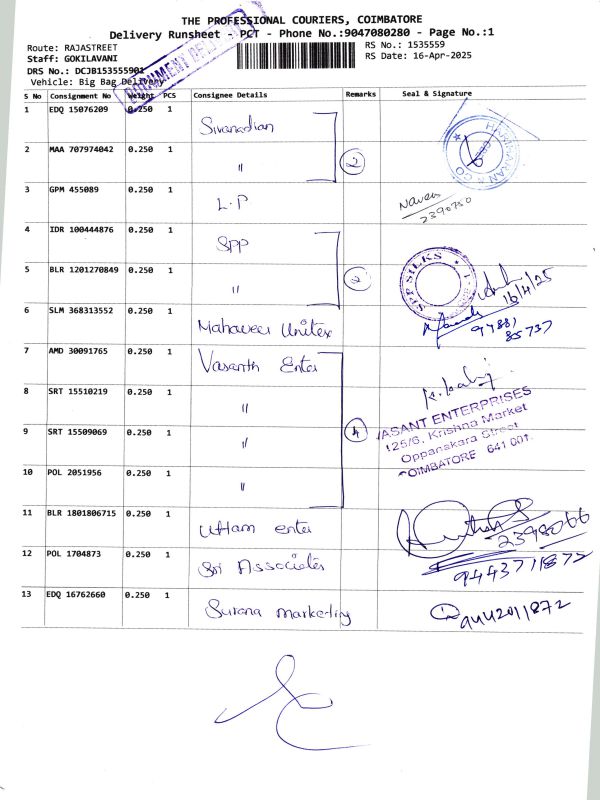 THE PROFESSIONAL COURIERS, COIMBATORE
Delivery Runsheet - PCT - Phone No.:9047080280 - Page No.:1
Route: RAJASTREET
RS No.: 1535559
Staff: GOKILAVANI
RS Date: 16-Apr-2025
DRS No.: DCJB153555901
DOCUMENT
Vehicle: Big Bag Delivery
S No Consignment No Weight PCS Consignee Details Remarks Seal & Signature
1 EDQ 15076209 0.250 1 Sivanadian
HARIHARAN & CO
2 MAA 707974042 0.250 1 " 2
3 GPM 455089 0.250 1 L.P Naveen
2390750
4 IDR 100444876 0.250 1 SPP
SPP SILKS
5 BLR 1201270849 0.250 1 " 2
16/4/25
6 SLM 368313552 0.250 1 Mahaveer Unitex
97881
85737
7 AMD 30091765 0.250 1 Vasanth Enter
8 SRT 15510219 0.250 1 "
VASANT ENTERPRISES
125/6, Krishna Market
9 SRT 15509069 0.250 1 " 4
Oppanakara Street
COIMBATORE 641 001.
10 POL 2051956 0.250 1 "
11 BLR 1801806715 0.250 1 Uttam enter
2398066
12 POL 1704873 0.250 1 Sri Associates
9443711872
13 EDQ 16762660 0.250 1 Surana marketing
9442011872